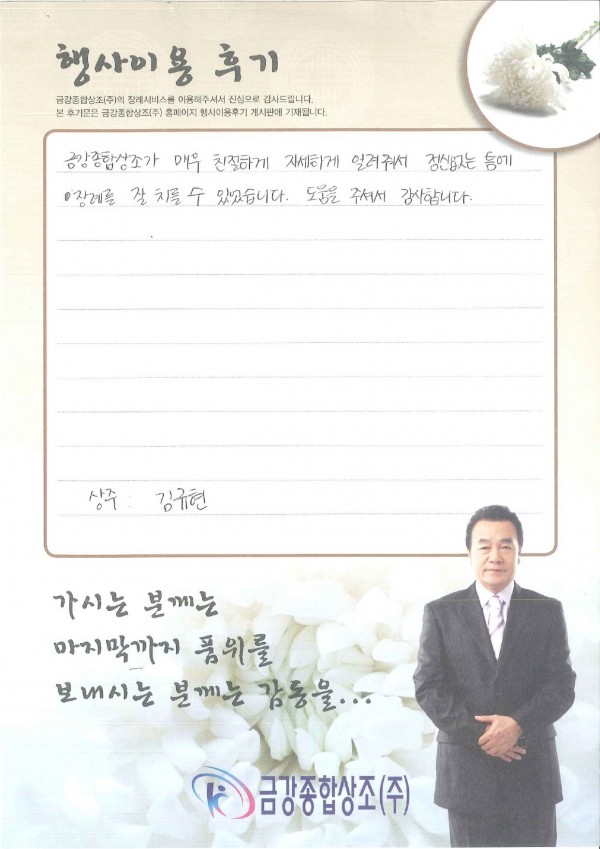 행사이용 후기
금강종합상조(주)의 장례서비스를 이용해주셔서 진심으로 감사드립니다.
본 후기문은 금강종합상조(주) 홈페이지 행사이용후기 게시판에 기재됩니다.
금강종합상조가 매우 친절하게 자세하게 알려줘서 정신없는 틈에
장례를 잘 치를 수 있었습니다. 도움을 주셔서 감사합니다.
상주 : 김규현
가시는 분께는
마지막까지 품위를
보내시는 분께는 감동을...
금강종합상조(주)